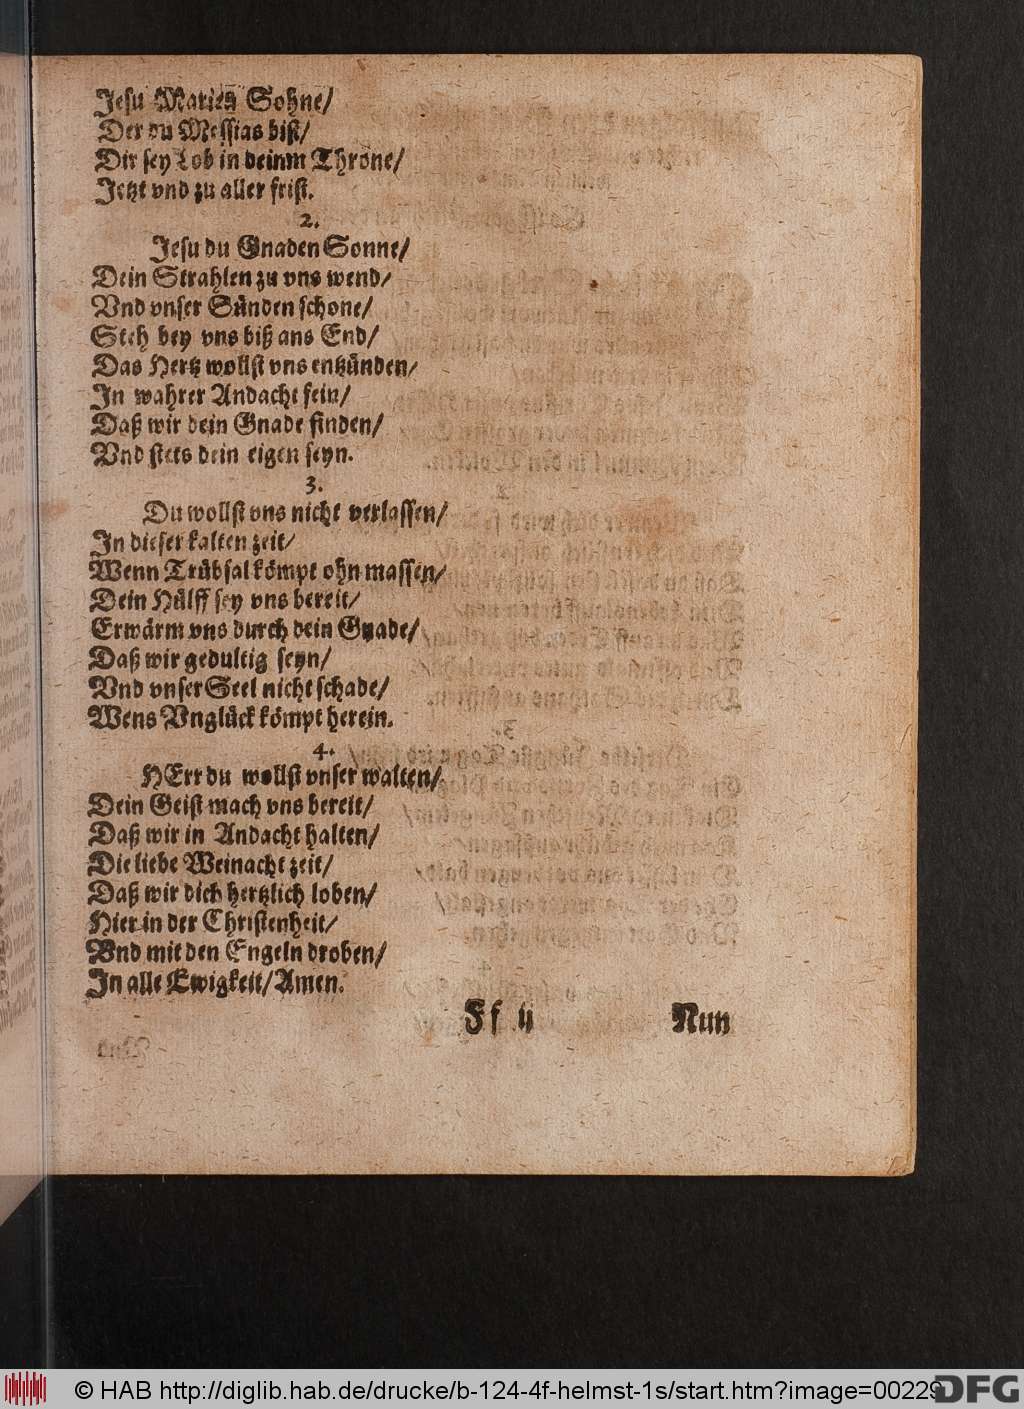 Jesu Marien Sohne/
Der du Messias bist/
Dir sey Lob in deinm Throne/
Jetzt vnd zu aller frist.
2.
Jesu du Gnaden Sonne/
Dein Strahlen zu vns wend/
Vnd vnser Sünden schone/
Steh bey vns biß ans End/
Das Hertz wollst vns entzünden/
In wahrer Andacht fein/
Daß wir dein Gnade finden/
Vnd stets dein eigen seyn.
3.
Du wollst vns nicht verlassen/
In dieser kalten zeit/
Wenn Trübsal kömpt ohn massen/
Dein Hülff sey vns bereit/
Erwärm vns durch dein Gnade/
Daß wir gedultig seyn/
Vnd vnser Seel nicht schade/
Wens Vnglück kömpt herein.
4.
HErr du wollst vnser walten/
Dein Geist mach vns bereit/
Daß wir in Andacht halten/
Die liebe Weinacht zeit/
Daß wir dich hertzlich loben/
Hier in der Christenheit/
Vnd mit den Engeln droben/
In alle Ewigkeit/ Amen.
Ff ij Nun
© HAB http://diglib.hab.de/drucke/b-124-4f-helmst-1s/start.htm?image=00229
DFG